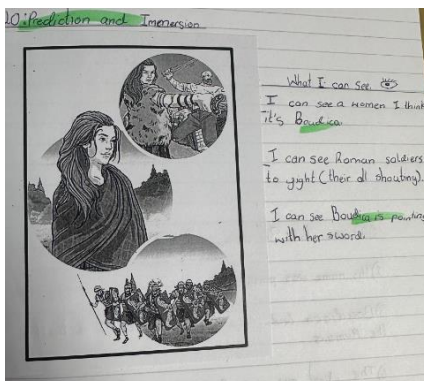 LO: Prediction and Immersion
What I can see
I can see a women I think
it's Boudica.
I can see Roman soldiers
to yight (their all shouting).
I can see Boudica is pointing
with her sword.